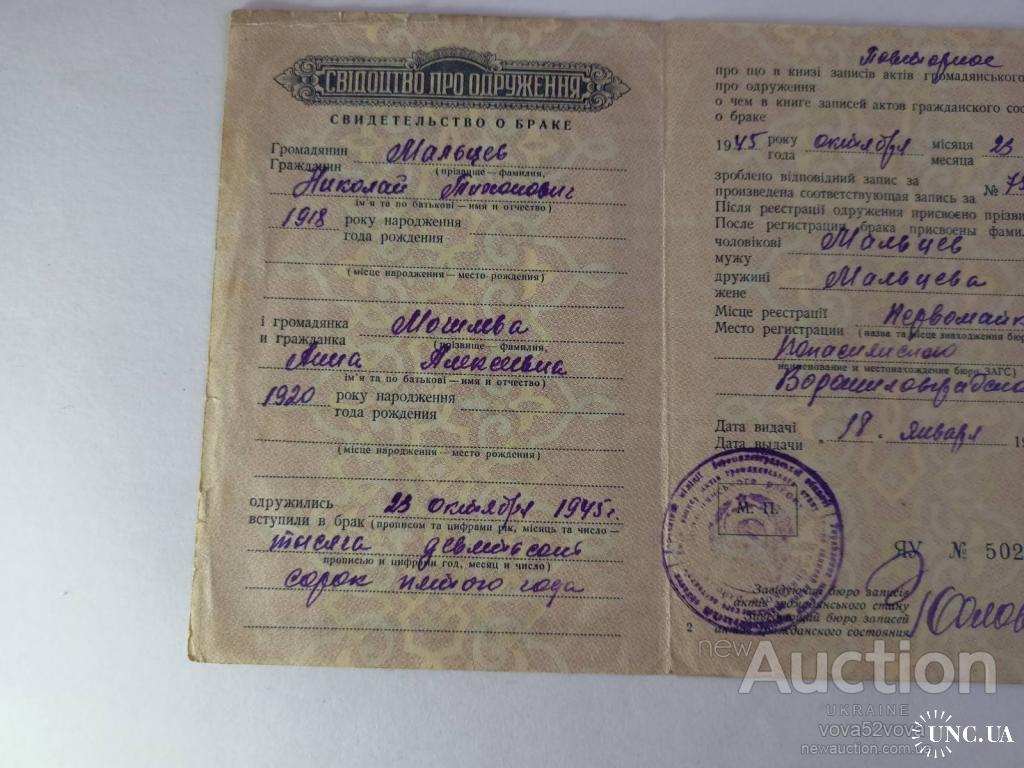 СВІДОЦТВО ПРО ОДРУЖЕННЯ
СВИДЕТЕЛЬСТВО О БРАКЕ
Громадянин Мальцев
Гражданин
(прізвище — фамилия,
Николай Тихонович
ім'я та по батькові — имя и отчество)
1918 року народження
года рождения
(місце народження — место рождения)
і громадянка
и гражданка
(прізвище — фамилия,
Анна Алексеевна
ім'я та по батькові — имя и отчество)
1920 року народження
года рождения
(місце народження — место рождения)
одружились 23 октября 1945 г.
вступили в брак (прописом та цифрами рік, місяць та число)
тысяча девятьсот
прописью и цифрами год, месяц и число)
сорок пятого года
Повторное
про що в книзі записів актів громадянського
про одруження
о чем в книге записей актов гражданского сос
о браке
1945 року октября місяця 23
года месяца
зроблено відповідний запис за
произведена соответствующая запись за №
Після реєстрації одружения присвоєно прізви
После регистрации брака присвоены фамил
чоловікові Мальцев
мужу
дружині Мальцева
жене
Місце реєстрації
Место регистрации (назва та місце знаходження бюр
наименование и местонахождение бюро ЗАГС)
Дата видачі
Дата выдачи 18. января 19
М. П.
ЯУ № 502
Завідуючий бюро записів
актів громадянського стану
Заведующий бюро записей
актов гражданского состояния
2
new Auction
UKRAINE
vova52vova
newauction.com.ua
UNC.UA